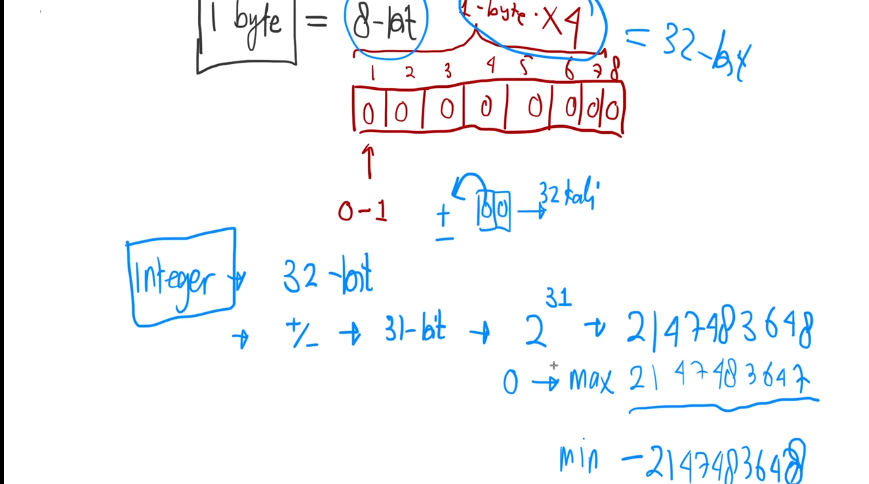 1 byte = 8-bit 1-byte · x4 = 32-bit
1 2 3 4 5 6 7 8
0 0 0 0 0 0 0 0
0-1
± 00 → 32 kali
Integer → 32-bit
→ +/- → 31-bit → 2^31 → 2147483648
0 → max 2147483647
min -2147483648